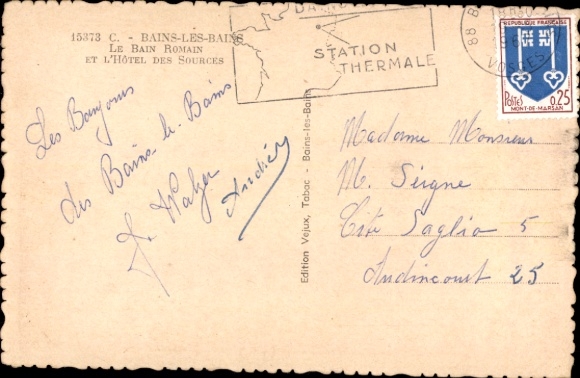 15373 C. - BAINS-LES-BAINS
LE BAIN ROMAIN
ET L'HÔTEL DES SOURCES
STATION
THERMALE
88 B
VOSGES
RÉPUBLIQUE FRANÇAISE
POSTES 0,25
MONT-DE-MARSAN
Les
des Bains les Bains
André
Edition Vejux, Tabac - Bains-les-Bains
Madame Monsieur
M. Seigne
Cité Saglio 5
Audincourt 25